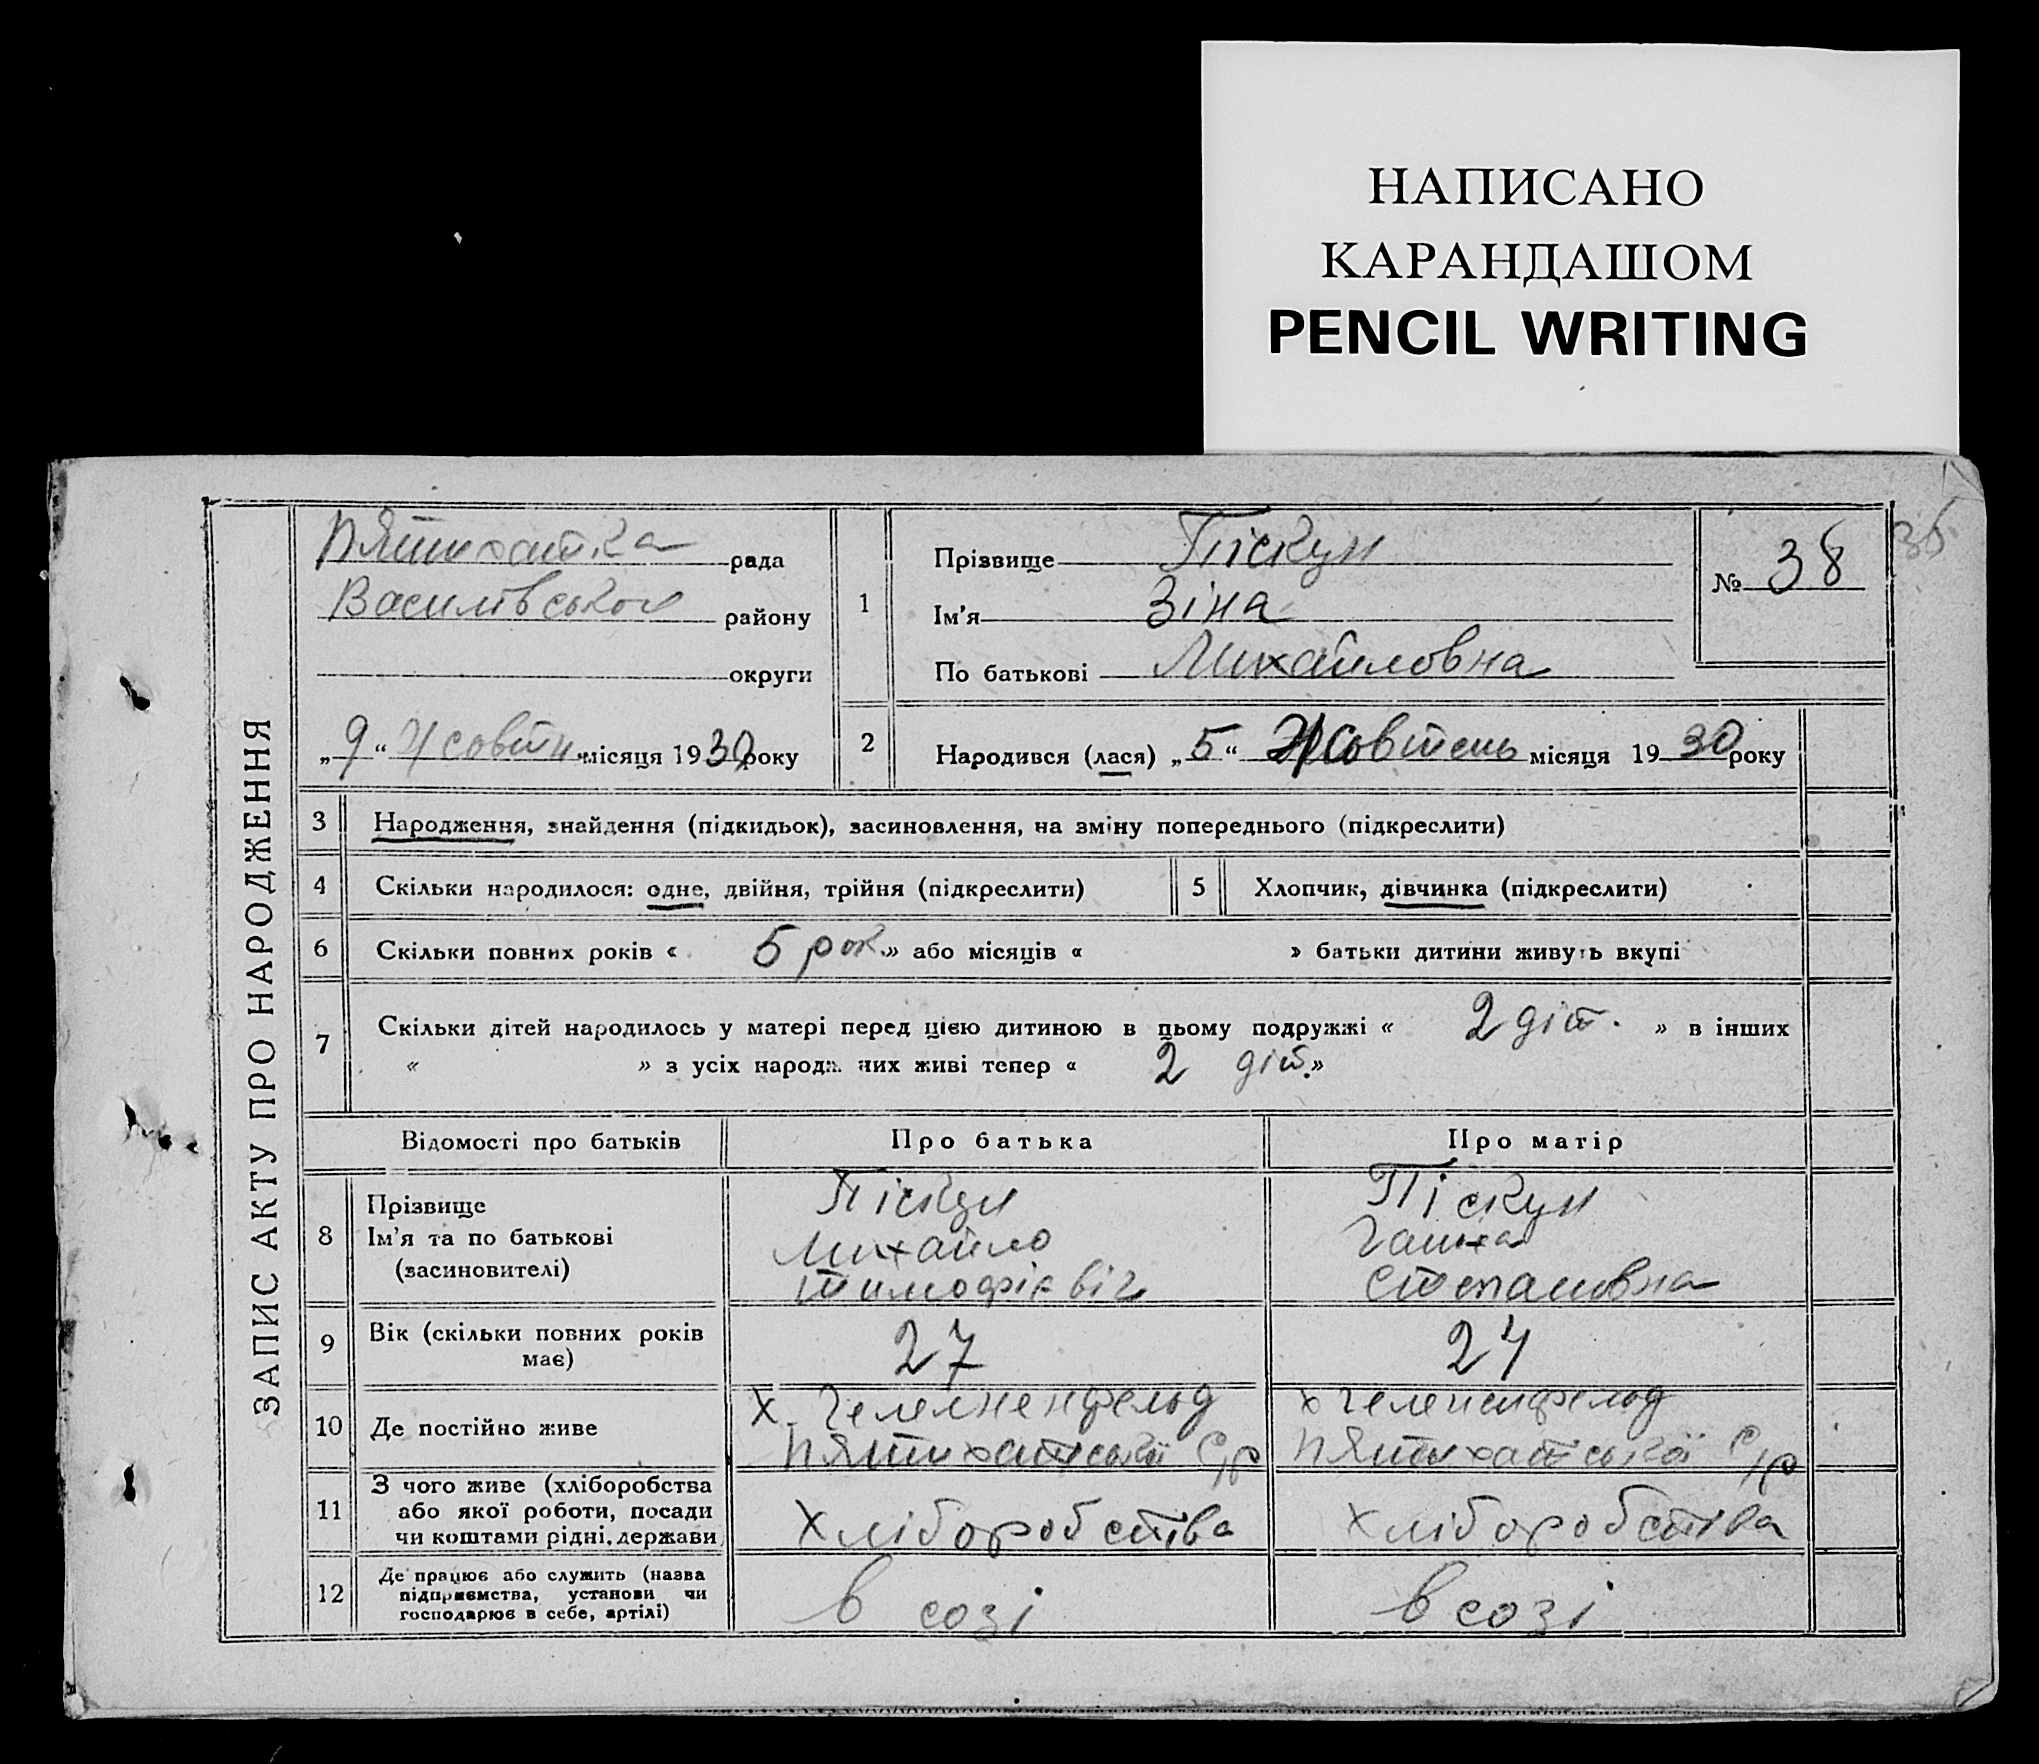 НАПИСАНО
КАРАНДАШОМ
PENCIL WRITING
ЗАПИС АКТУ ПРО НАРОДЖЕННЯ
Пятихатка рада
Василівської району
округи
„9“ Жовтн місяця 1930 року
1
Прізвище Піскун
Ім'я Зіна
По батькові Михайловна
№ 38
36
2 Народився (лася) „5“ Жовтень місяця 1930 року
3 Народження, знайдення (підкидьок), засиновлення, на зміну попереднього (підкреслити)
4 Скільки народилося: одне, двійня, трійня (підкреслити) 5 Хлопчик, дівчинка (підкреслити)
6 Скільки повних років « 5 рок. » або місяців « » батьки дитини живуть вкупі
7 Скільки дітей народилось у матері перед цією дитиною в цьому подружжі « 2 діт. » в інших
« » з усіх народж них живі тепер « 2 діт. »
Відомості про батьків Про батька Про матір
8 Прізвище
Ім'я та по батькові
(засиновителі)
Піскун
Михайло
Тимофієвіч
Піскун
Степановна
9 Вік (скільки повних років
має)
27 24
10 Де постійно живе
х.
Пятихатської с/р
х
Пятихатської с/р
11 З чого живе (хліборобства
або якої роботи, посади
чи коштами рідні, держави
Хліборобства Хліборобства
12 Де працює або служить (назва
підприємства, установи чи
господарює в себе, артілі)
в созі в созі